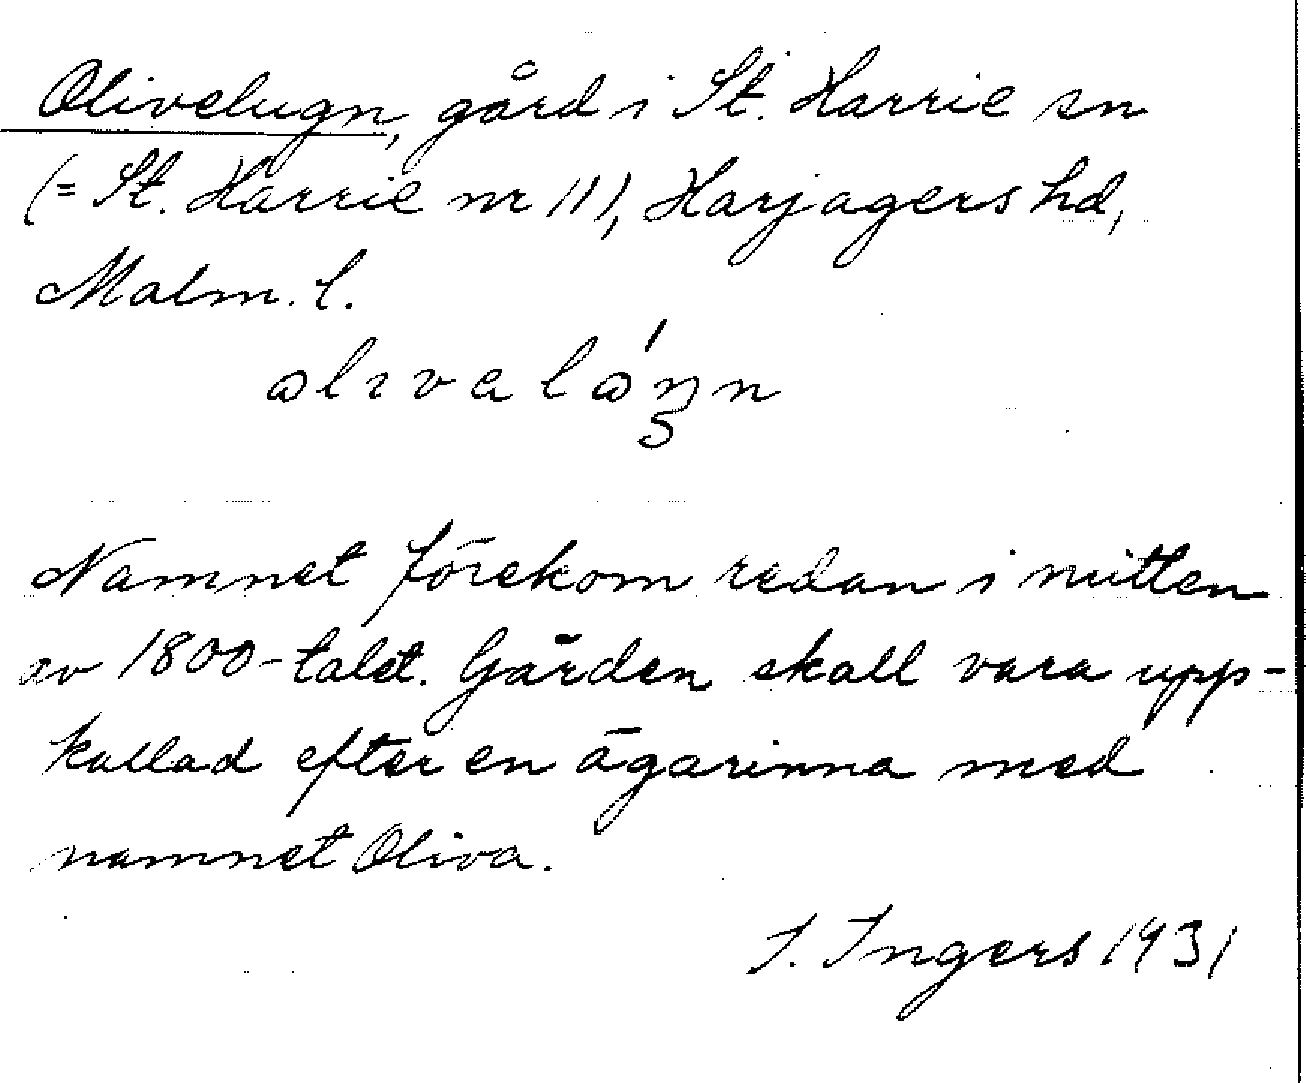 Olivelugn, gård i St. Harrie sn
(= St. Harrie nr 11), Harjagers hd,
Malm. l.
Namnet förekom redan i mitten
av 1800-talet. Gården skall vara upp-
kallad efter en ägarinna med
namnet Oliva.
I. Ingers 1931